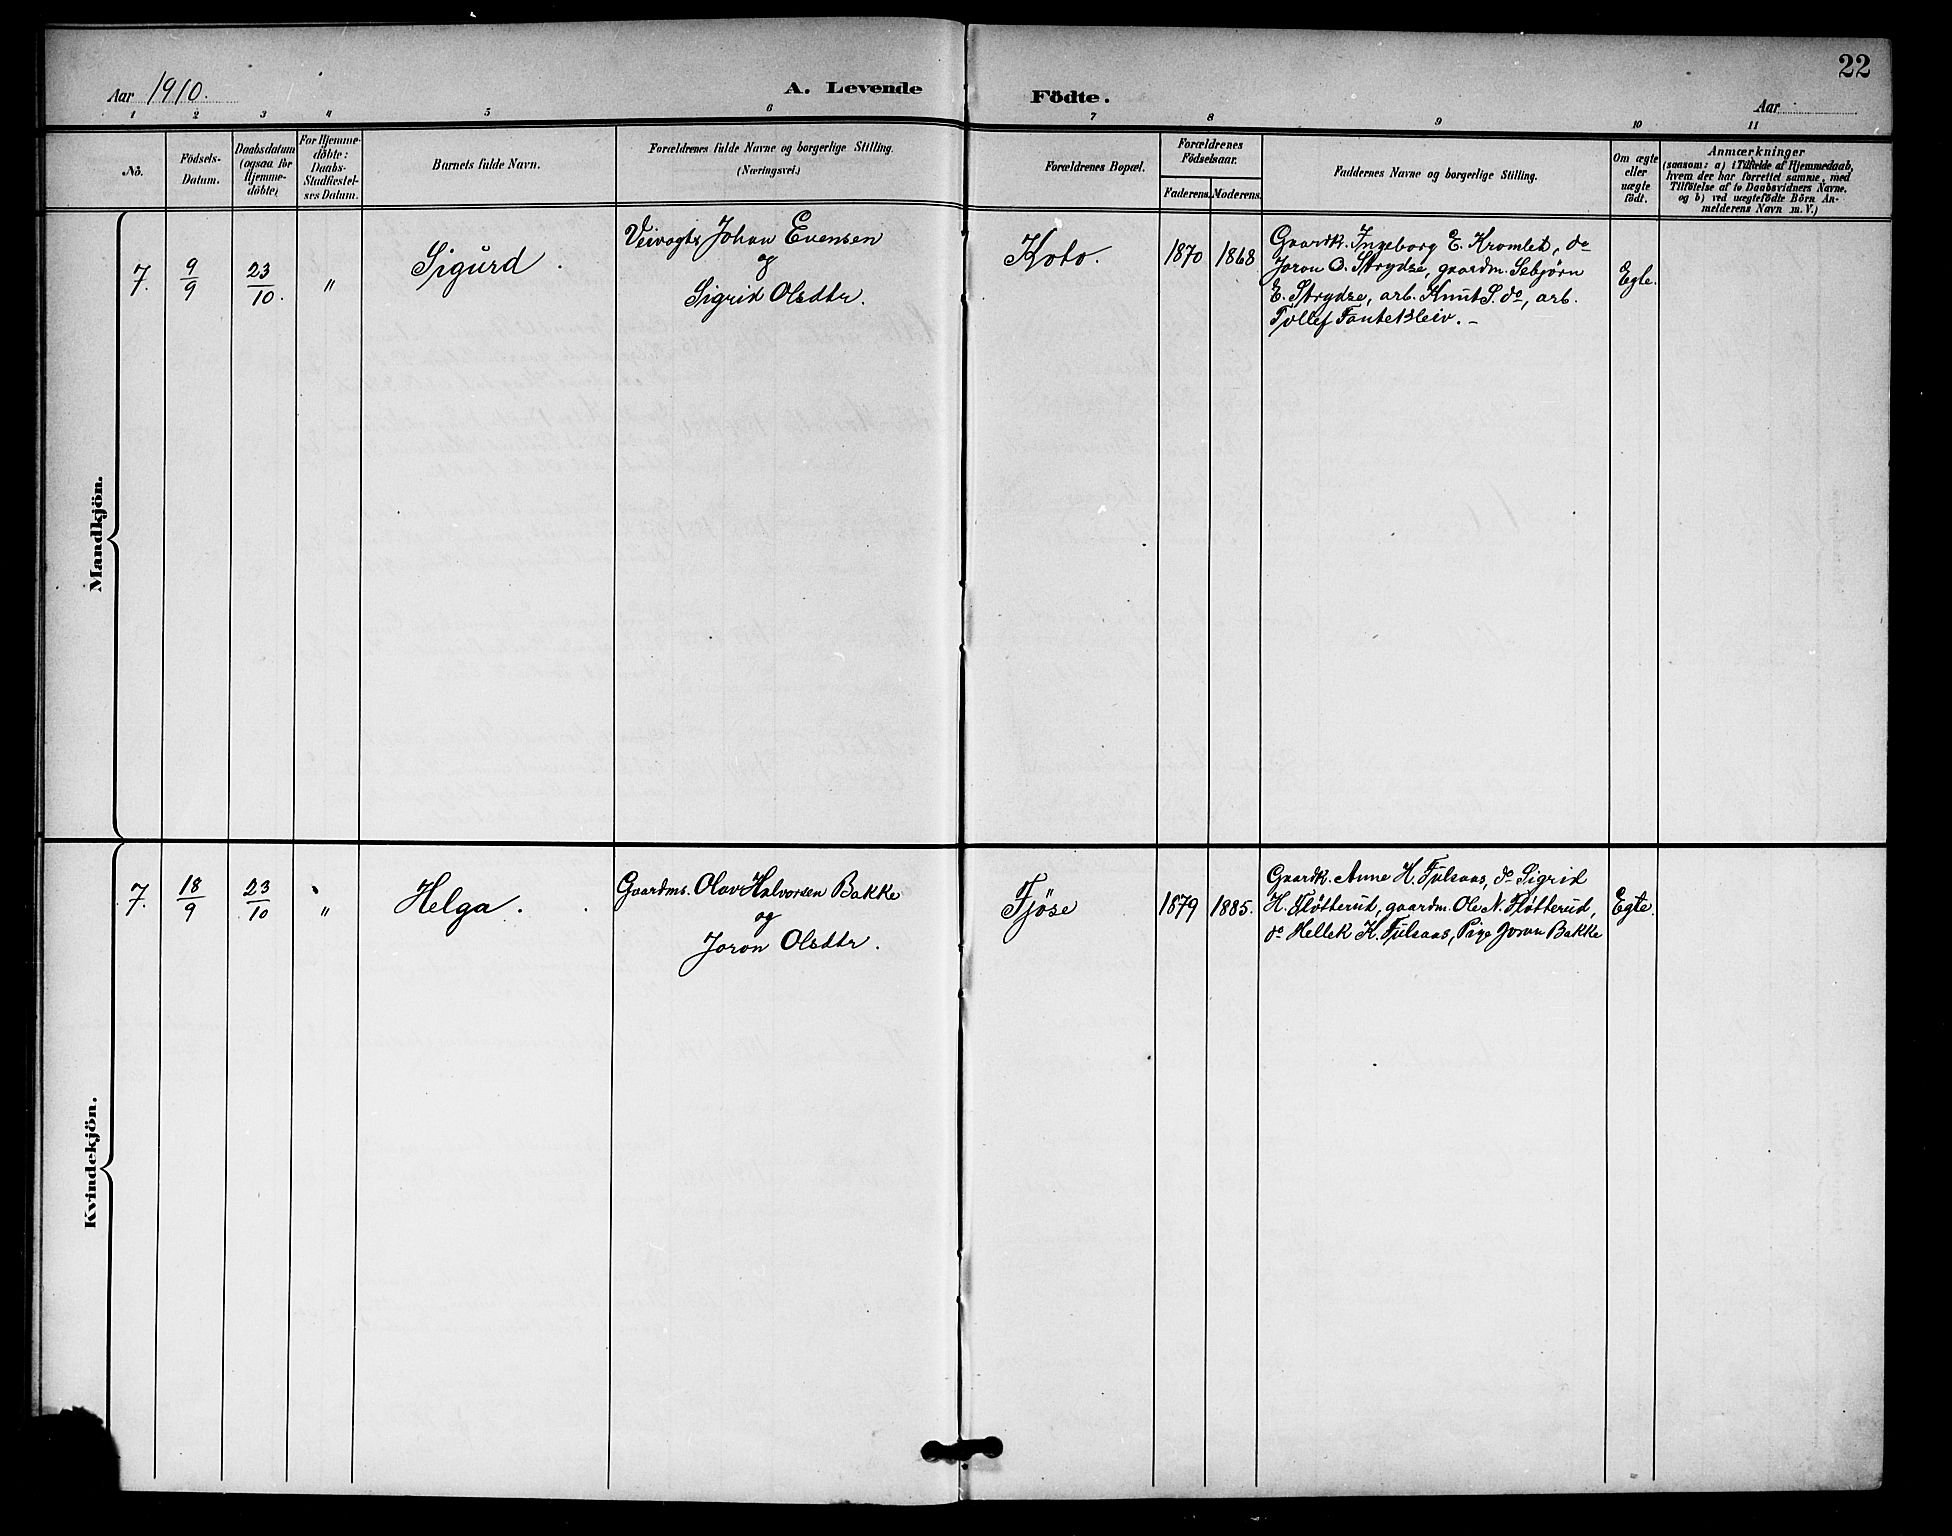 22
Aar 1910.
A. Levende Födte.
Aar
1 2 3 4 5 6 7 8 9 10 11
No.
Födsels-
Datum.
Daabsdatum
(ogsaa for
Hjemme-
döbte)
For Hjemme-
döbte:
Daabs-
Stadfæstel-
ses Datum.
Barnets fulde Navn.
Forældrenes fulde Navne og borgerlige Stilling.
(Næringsvei.)
Forældrenes Bopæl.
Forældrenes
Födselsaar.
Faderens. Moderens.
Faddernes Navne og borgerlige Stilling.
Om ægte
eller
uægte
født.
Anmærkninger
(saasom: a) i Tilfælde af Hjemmedaab,
hvem der har forrettet samme, med
Tilföielse af to Daabsvidners Navne.
og b) ved uægtefödte Börn An-
melderens Navn m. V.)
Mandkjön.
7.
9/9
23/10.
"
Sigurd.
Veivogts Johan Evensen
og
Sigrid Olsdtr.
Koto.
1870
1868
Gaardk. Ingeborg E. Kromlet, do
Joron O. Strydse, gaardm. Sebjørn
E. Strydse, arb. Knut S. do, arb.
Tollef Fantekleiv. -
Egte.
Kvindekjön.
7.
18/9
23/10
"
Helga.
Gaardms. Olav Halvorsen Bakke
og
Joron Olsdtr.
Fjöse
1879
1885.
Gaardk. Anne H. Fulsaas, do Sigrid
H. Fløtterud, gaardm. Ole N. Fløtterud,
do Hellek K. Fulsaas, Pige Joron Bakke
Egte.